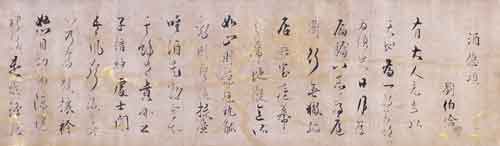 酒德頌
劉伯倫
有大人先生以
天地為一朝萬期
為須臾日月為
扃牖八荒為庭
衢行無轍跡
居無室廬幕
天席地縱意所
如止則操巵執觚
動則挈榼提壺
唯酒是務焉知
其餘有貴介公
子搢紳處士聞
吾風聲議其所
以乃奮袂攘衿
怒目切齒陳說
禮法是非鋒起